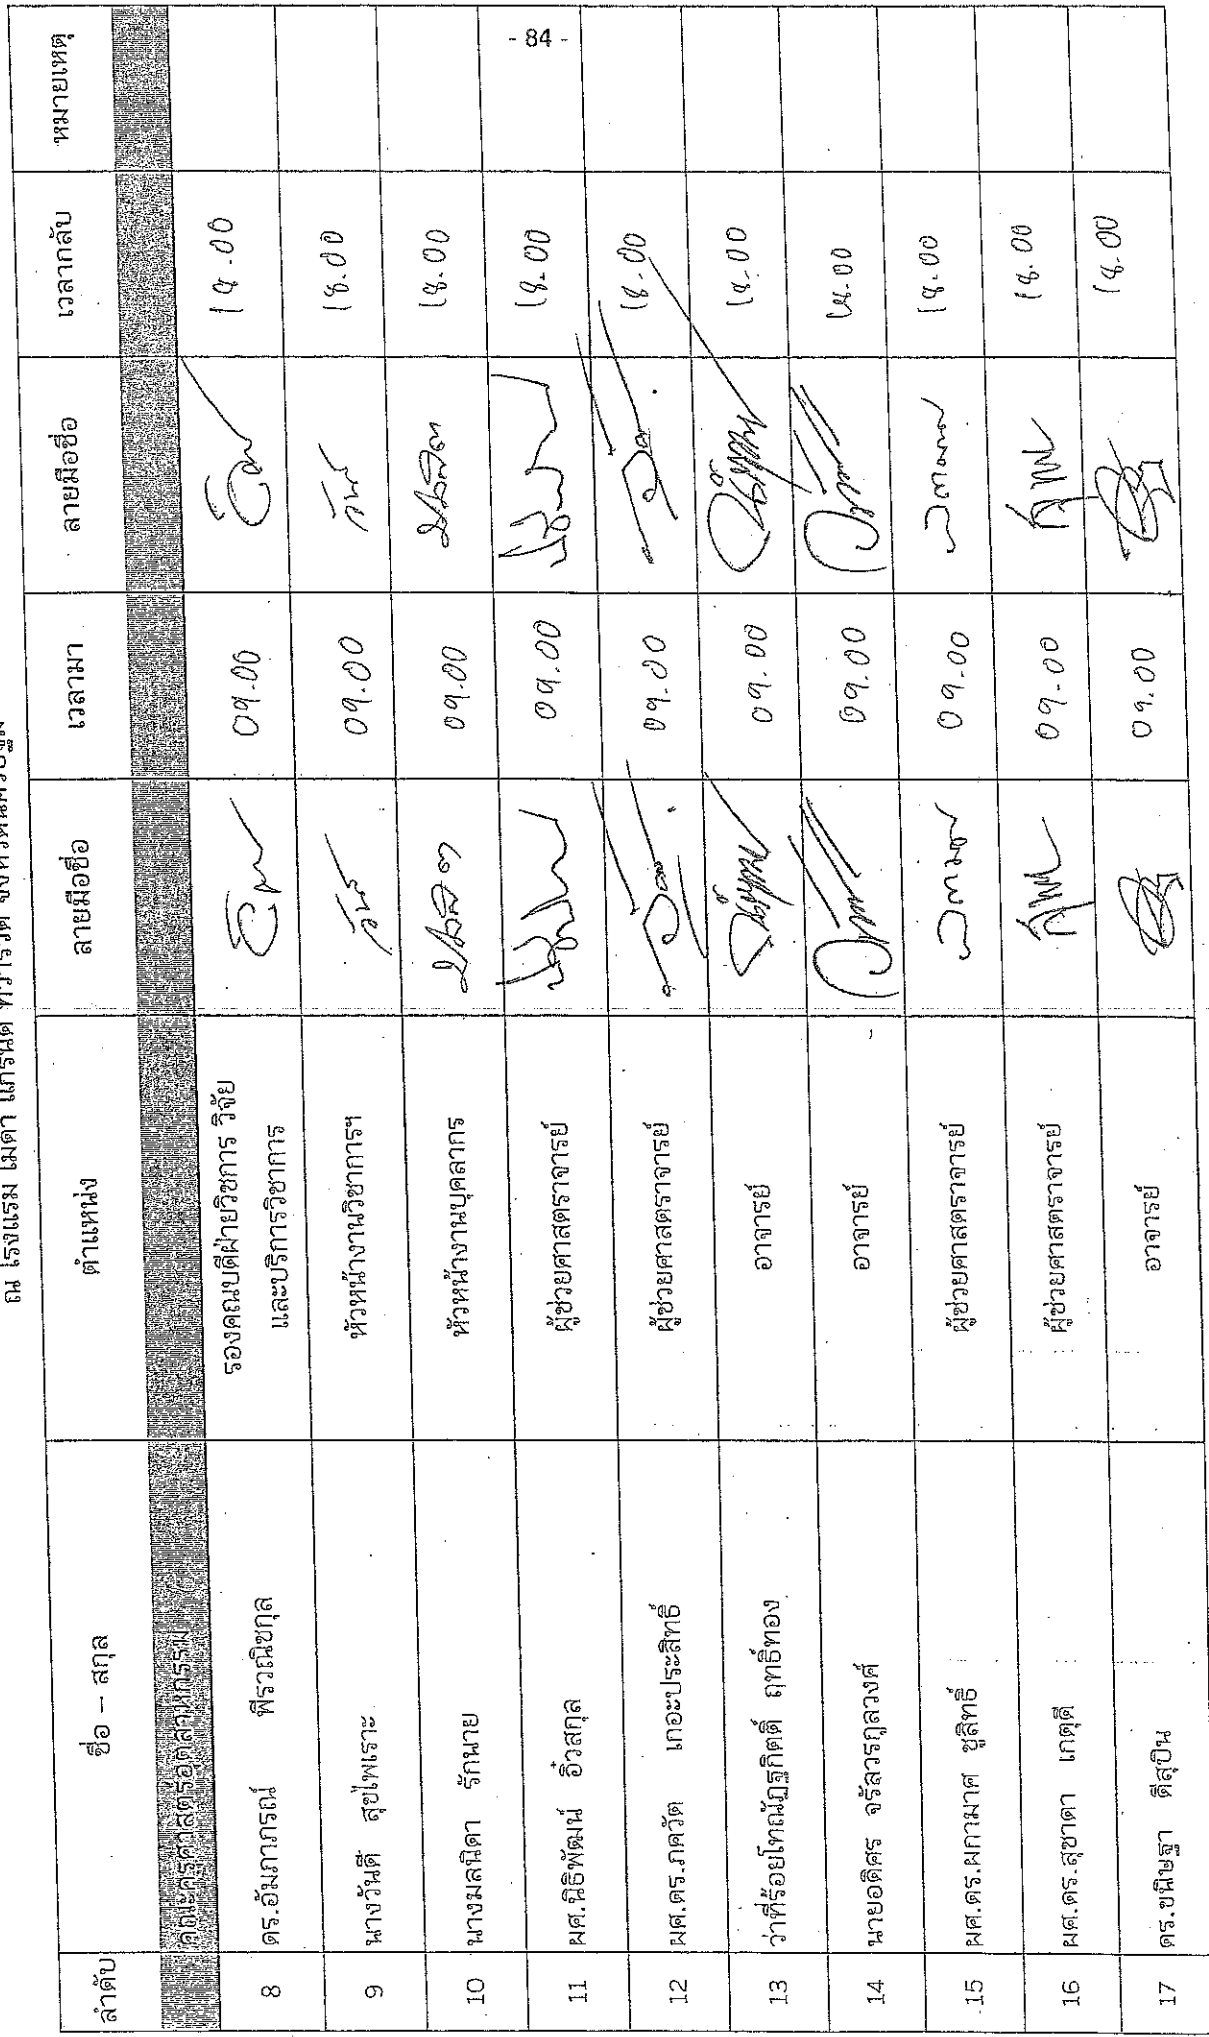 - 84 -
ณ โรงแรม เมดา แกรนด์ ทวารวดี จังหวัดนครปฐม
ลำดับ ชื่อ – สกุล ตำแหน่ง ลายมือชื่อ เวลามา ลายมือชื่อ เวลากลับ หมายเหตุ
คณะครุศาสตร์อุตสาหกรรม
8 ดร.อัมภาภรณ์ พีรวณิชกุล รองคณบดีฝ่ายวิชการ วิจัย 09.00 18.00
และบริการวิชาการ
9 นางวันดี สุขไพเราะ หัวหน้างานวิชาการฯ 09.00 18.00
10 นางมลนิดา รักนาย หัวหน้างานบุคลากร 09.00 18.00
11 ผศ.นิธิพัฒน์ อิ๋วสกุล ผู้ช่วยศาสตราจารย์ 09.00 18.00
12 ผศ.ดร.ภควัต เกอะประสิทธิ์ ผู้ช่วยศาสตราจารย์ 09.00 18.00
13 ว่าที่ร้อยโทณัฏฐกิตติ์ ฤทธิ์ทอง อาจารย์ 09.00 18.00
14 นายอดิศร จรัลวรกูลวงศ์ อาจารย์ 09.00 18.00
15 ผศ.ดร.ผกามาศ ชูสิทธิ์ ผู้ช่วยศาสตราจารย์ 09.00 18.00
16 ผศ.ดร.สุชาดา เกตุดี ผู้ช่วยศาสตราจารย์ 09.00 18.00
17 ดร.ขนิษฐา ดีสุบิน อาจารย์ 09.00 18.00